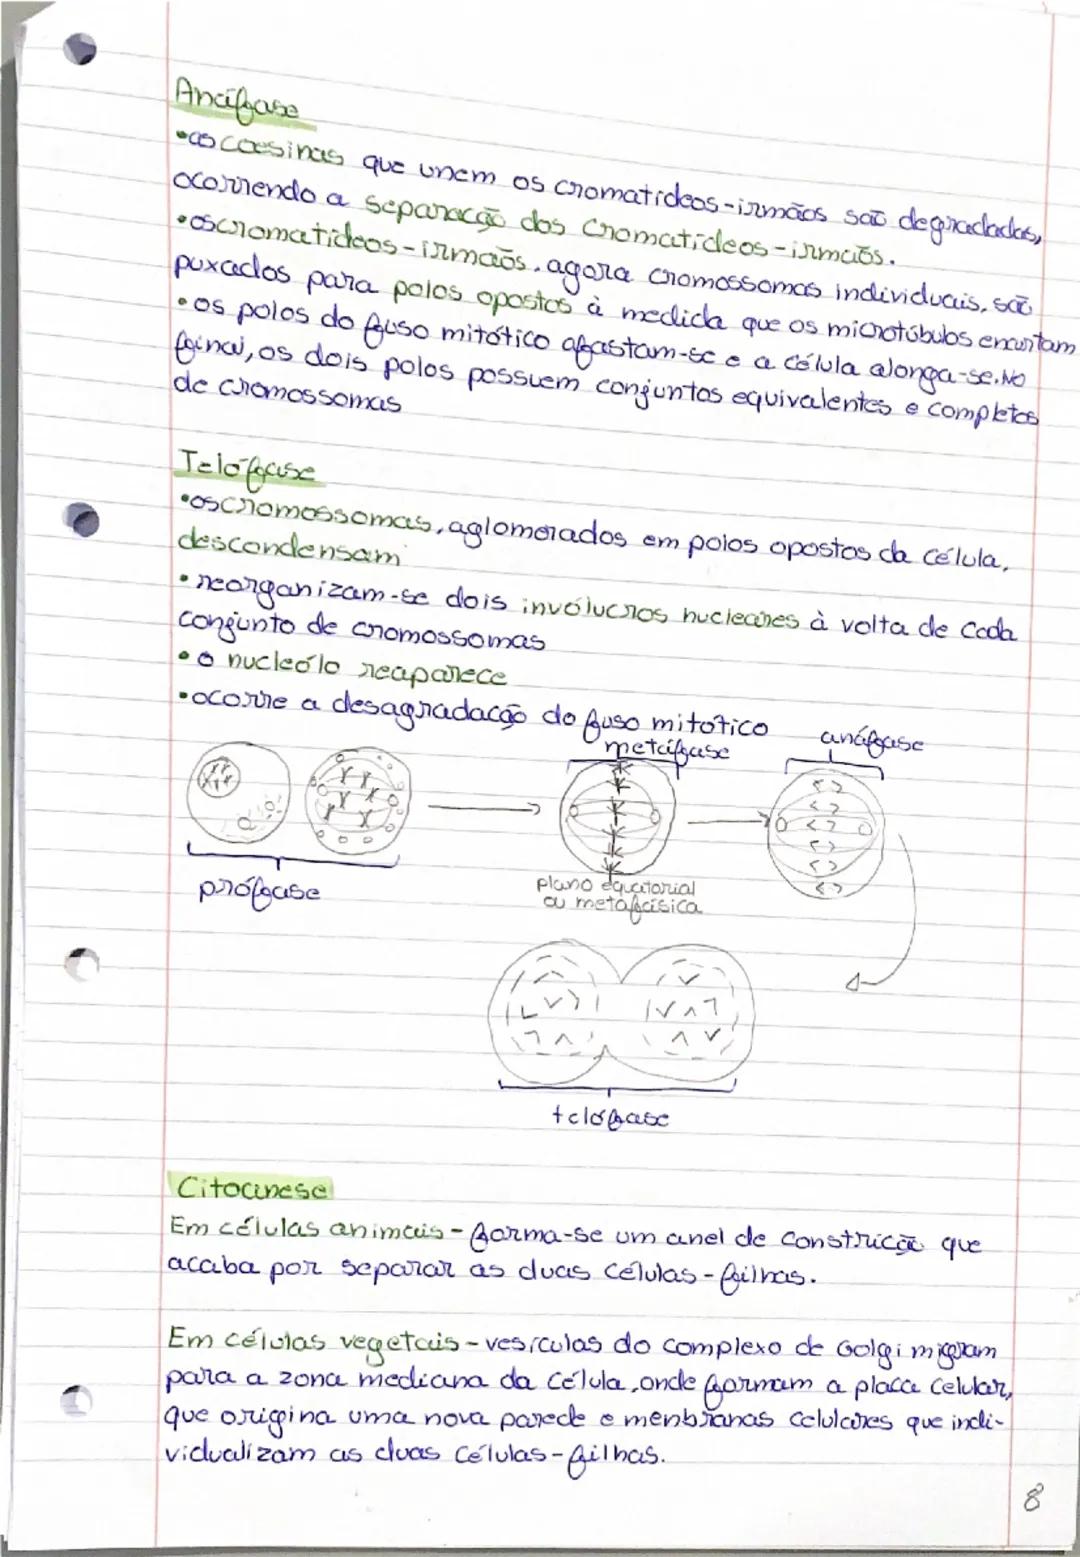 Anáfase
•as coesinas que unem os cromatídeos-irmãos são degradadas,
ocorrendo a separação dos cromatídeos-irmãos.
•os cromatídeos-irmãos, agora cromossomas individuais, são
puxados para polos opostos à medida que os microtúbulos encurtam
•os polos do fuso mitótico afastam-se e a célula alonga-se. No
final, os dois polos possuem conjuntos equivalentes e completos
de cromossomas
Telófase
•os cromossomas, aglomerados em polos opostos da célula,
descondensam
•reorganizam-se dois invólucros nucleares à volta de cada
conjunto de cromossomas
•o nucleólo reaparece
•ocorre a desagradação do fuso mitótico
metáfase
anáfase
prófase
plano equatorial
ou metafásica
telófase
Citocinese
Em células animais - forma-se um anel de constrição que
acaba por separar as duas células-filhas.
Em células vegetais - vesículas do complexo de Golgi migram
para a zona mediana da célula, onde formam a placa celular,
que origina uma nova parede e menbranas celulares que indi-
vidualizam as duas células-filhas.
8